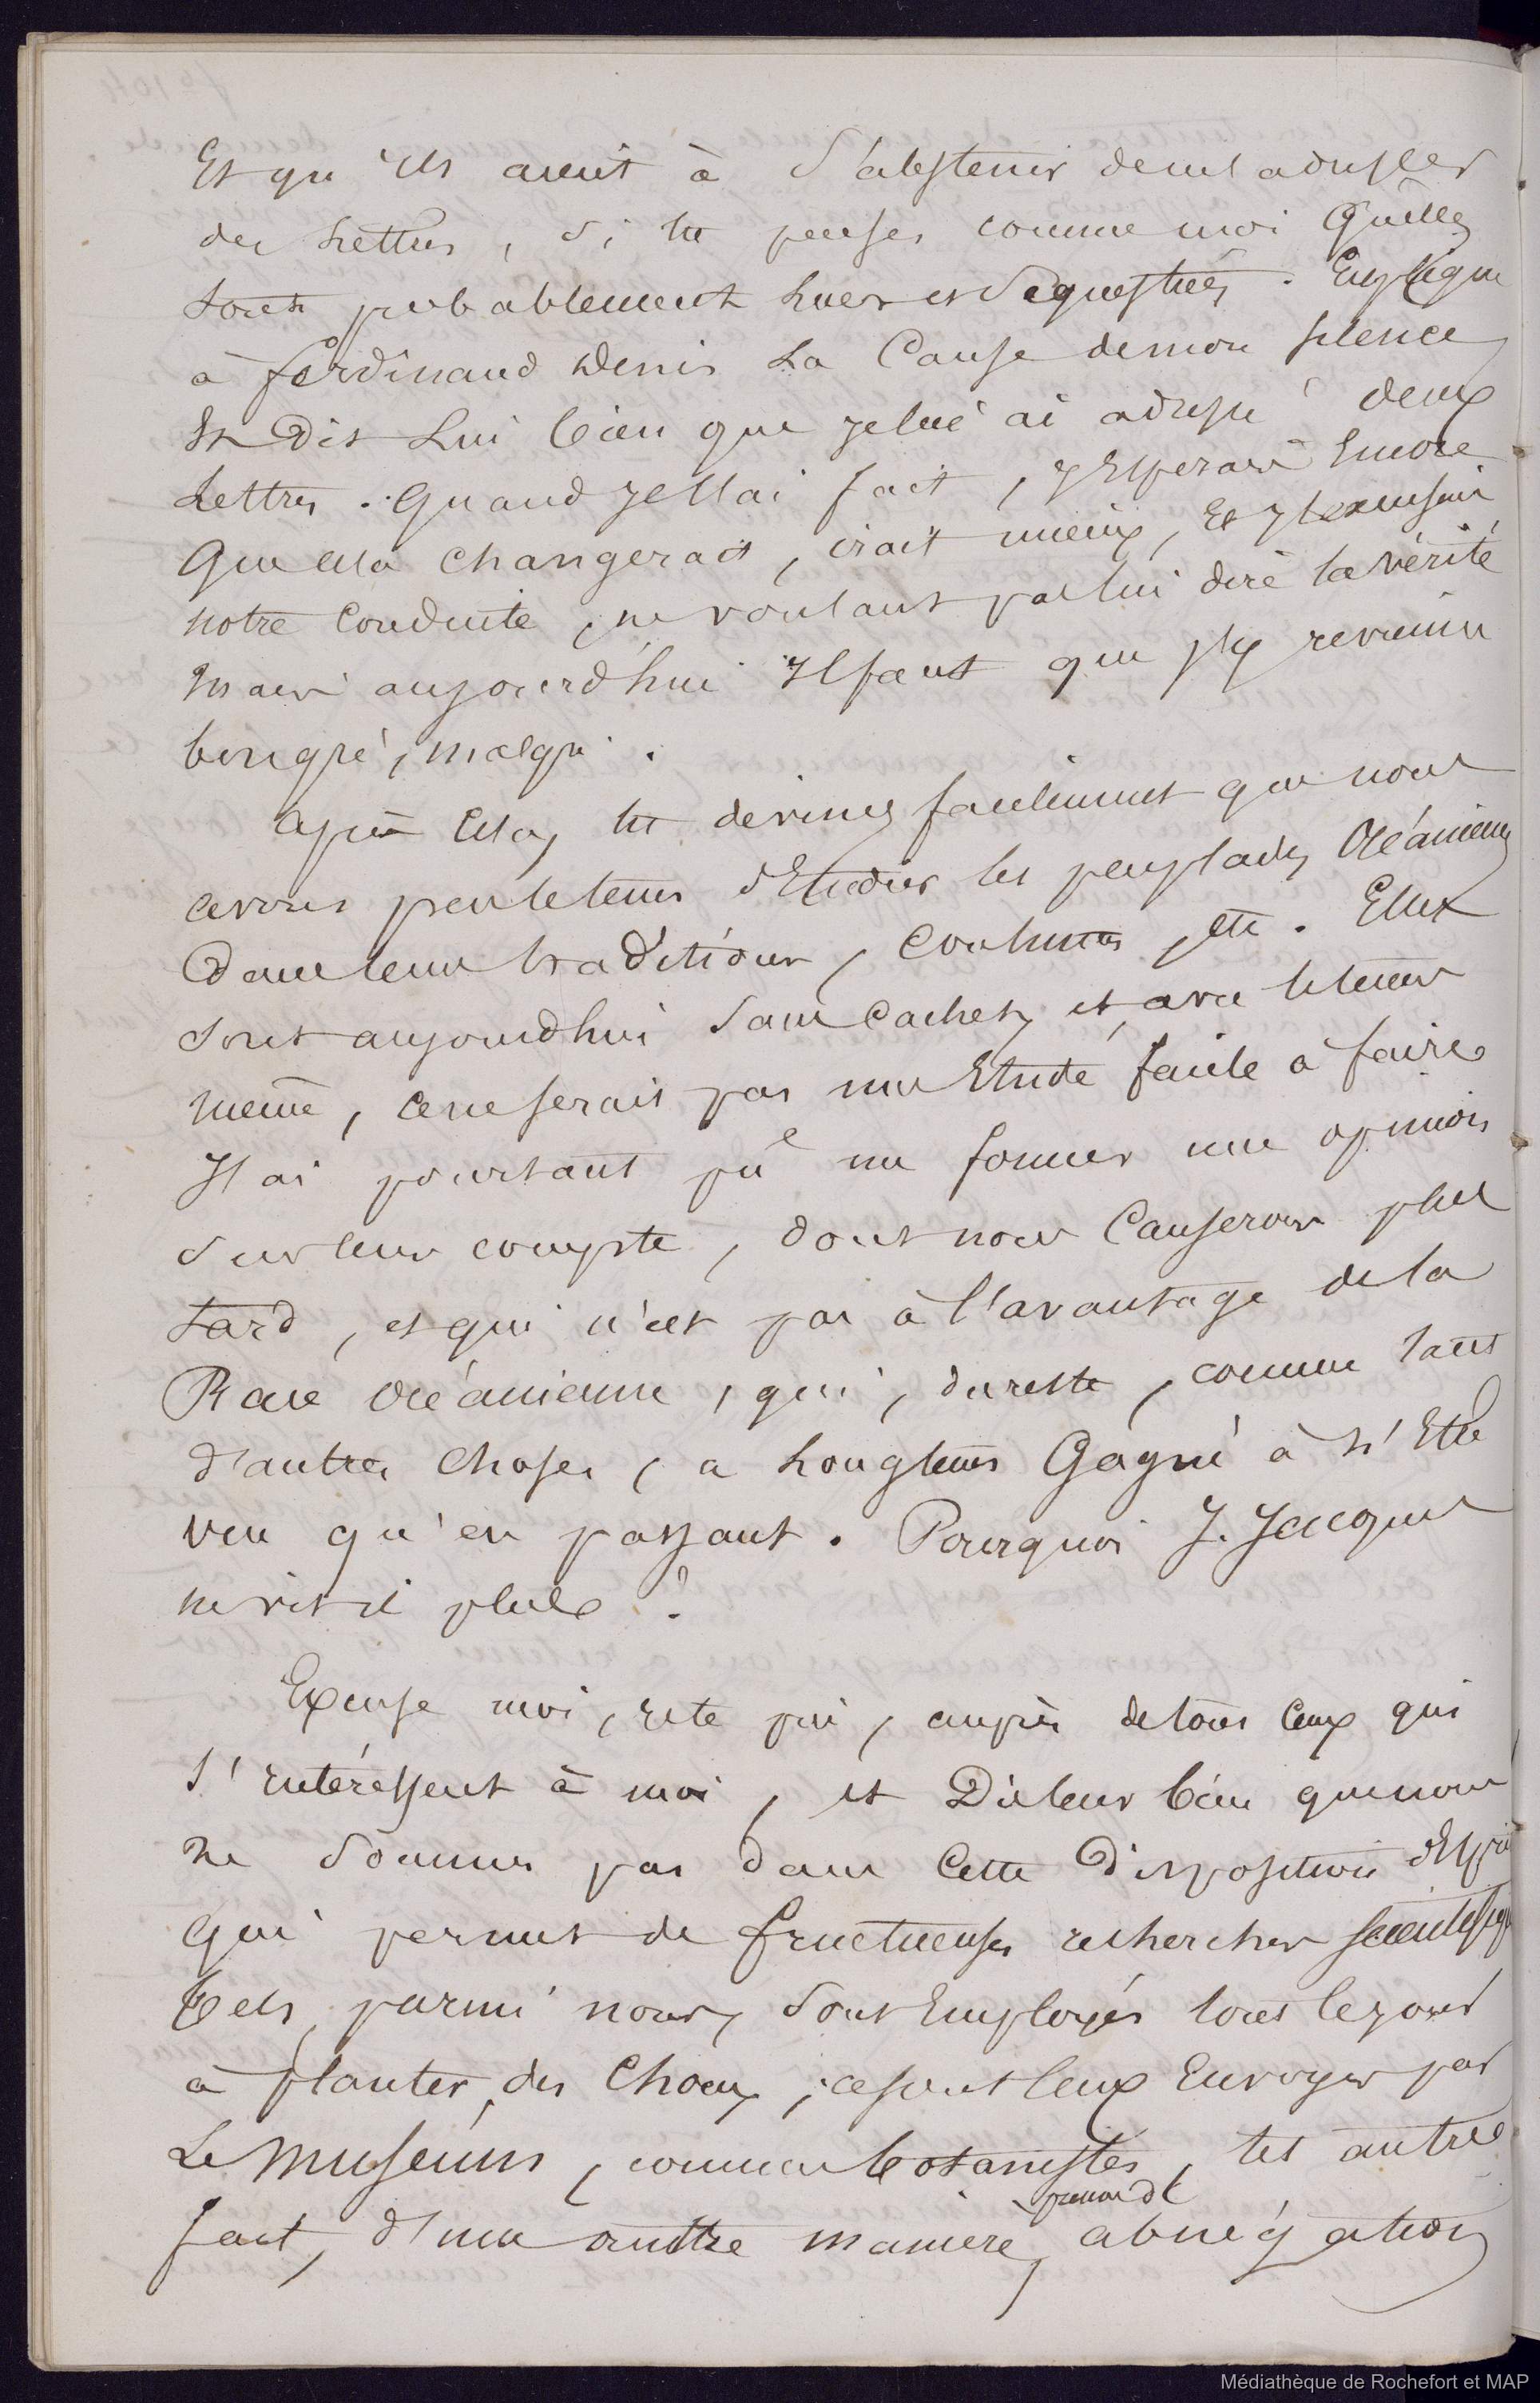 Et qu'ils aient à s'abstenir de m'adresser
des Lettres, si tu penses comme moi Qu'elles
sont probablement lues et séquestrées. Explique
à ferdinand Denis La Cause de mon silence
Et Dis Lui bien que je lui ai adressé deux
Lettres. Quand je l'ai fait, j'Espérais Encore
Que cela changerait, irait mieux, Et j'excusais
notre Conduite, ne voulant pas lui dire la vérité
mais aujourd'hui Il faut que j'y revienne
bongré, malgré.
après Cela, tu devines facilement que nous
avons peu le tems d'Etudier les peuplades Océaniennes
Dans leurs traditions, Coutumes, etc. Elles
sont aujourd'hui sans cachet, et, avec le tems
même, ce ne serait pas une Etude facile à faire
J'ai pourtant pu me former une opinion
sur leur compte, dont nous Causerons plus
tard, et qui n'est pas à l'avantage de la
Race Océanienne, qui, du reste, comme tant
d'autres Choses, a Longtems Gagné à n'Etre
vue qu'en passant. Pourquoi J. Jacques
ne vit il plus ?
Excuse moi, je te prie, auprès de tous Ceux qui
s'intéressent à moi, et Dis leur bien que nous
ne sommes pas dans Cette Disposition d'Esprit
qui permet de fructueuses recherches scientifiques
tels, parmi nous, sont Employés tous les jours
à planter des Choux, ce sont Ceux Envoyés par
Le Muséum, comme botanistes, tel autre
fait, d'une autre manière, preuve d'
abnégation
Médiathèque de Rochefort et MAP